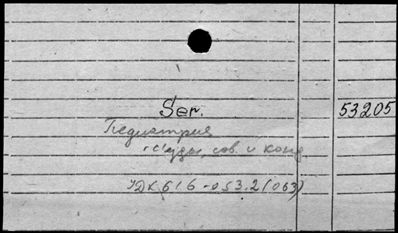 Ser. 53205
Педиатрия
съезды, сов. и конф
УДК 616-053.2(063)